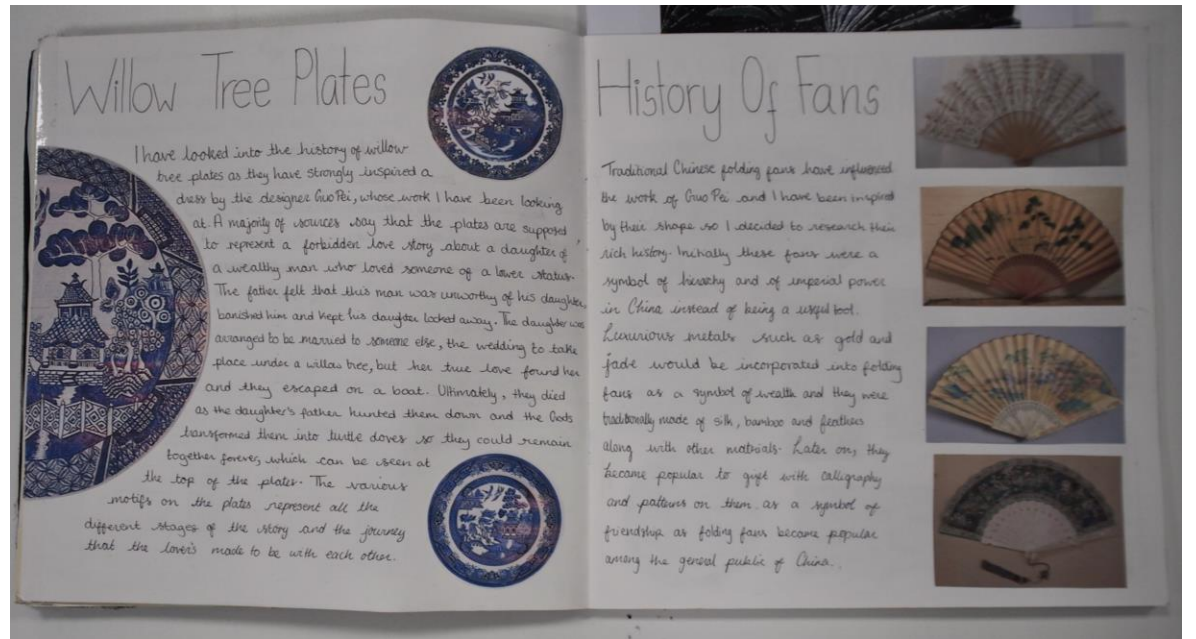 Willow Tree Plates
I have looked into the history of willow
tree plates as they have strongly inspired a
dress by the designer Guo Pei, whose work I have been looking
at. A majority of sources say that the plates are supposed
to represent a forbidden love story about a daughter of
a wealthy man who loved someone of a lower status.
The father felt that this man was unworthy of his daughter,
banished him and kept his daughter locked away. The daughter was
arranged to be married to someone else, the wedding to take
place under a willow tree, but her true love found her
and they escaped on a boat. Ultimately, they died
as the daughter's father hunted them down and the Gods
transformed them into turtle doves so they could remain
together forever, which can be seen at
the top of the plates. The various
motifs on the plates represent all the
different stages of the story and the journey
that the lover's made to be with each other.
History Of Fans
Traditional Chinese folding fans have influenced
the work of Guo Pei and I have been inspired
by their shape so I decided to research their
rich history. Initially these fans were a
symbol of hierachy and of imperial power
in China instead of being a useful tool.
Luxurious metals such as gold and
jade would be incorporated into folding
fans as a symbol of wealth and they were
traditionally made of silk, bamboo and feathers
along with other materials. Later on, they
became popular to gift with calligraphy
and patterns on them as a symbol of
friendship as folding fans became popular
among the general public of China.